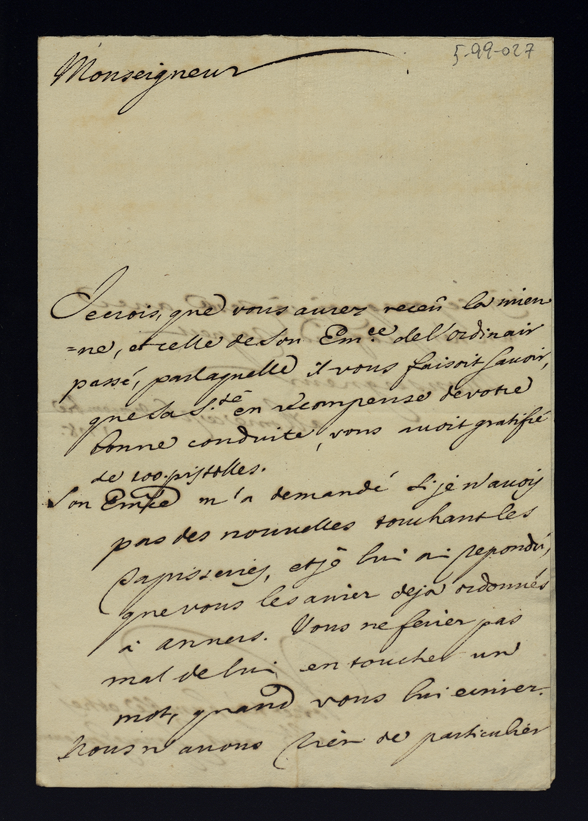 5-99-027
Monseigneur
Je crois, que vous aurez receu la mien
=ne, et celle de son Em.ce de l'ordinair
passé, par laquelle il vous faisoit savoir,
que sa S.té en recompense de votre
bonne conduite, vous avoit gratifié
de 100 pistolles.
Son Em.ce m'a demandé si je n'avois
pas des nouvelles touchant les
tapisseries, et je lui ai repondu,
que vous les aviez deja ordonnés
à anvers. Vous ne feriez pas
mal de lui en toucher un
mot, quand vous lui ecrirez.
Nous n'avons rien de particulier